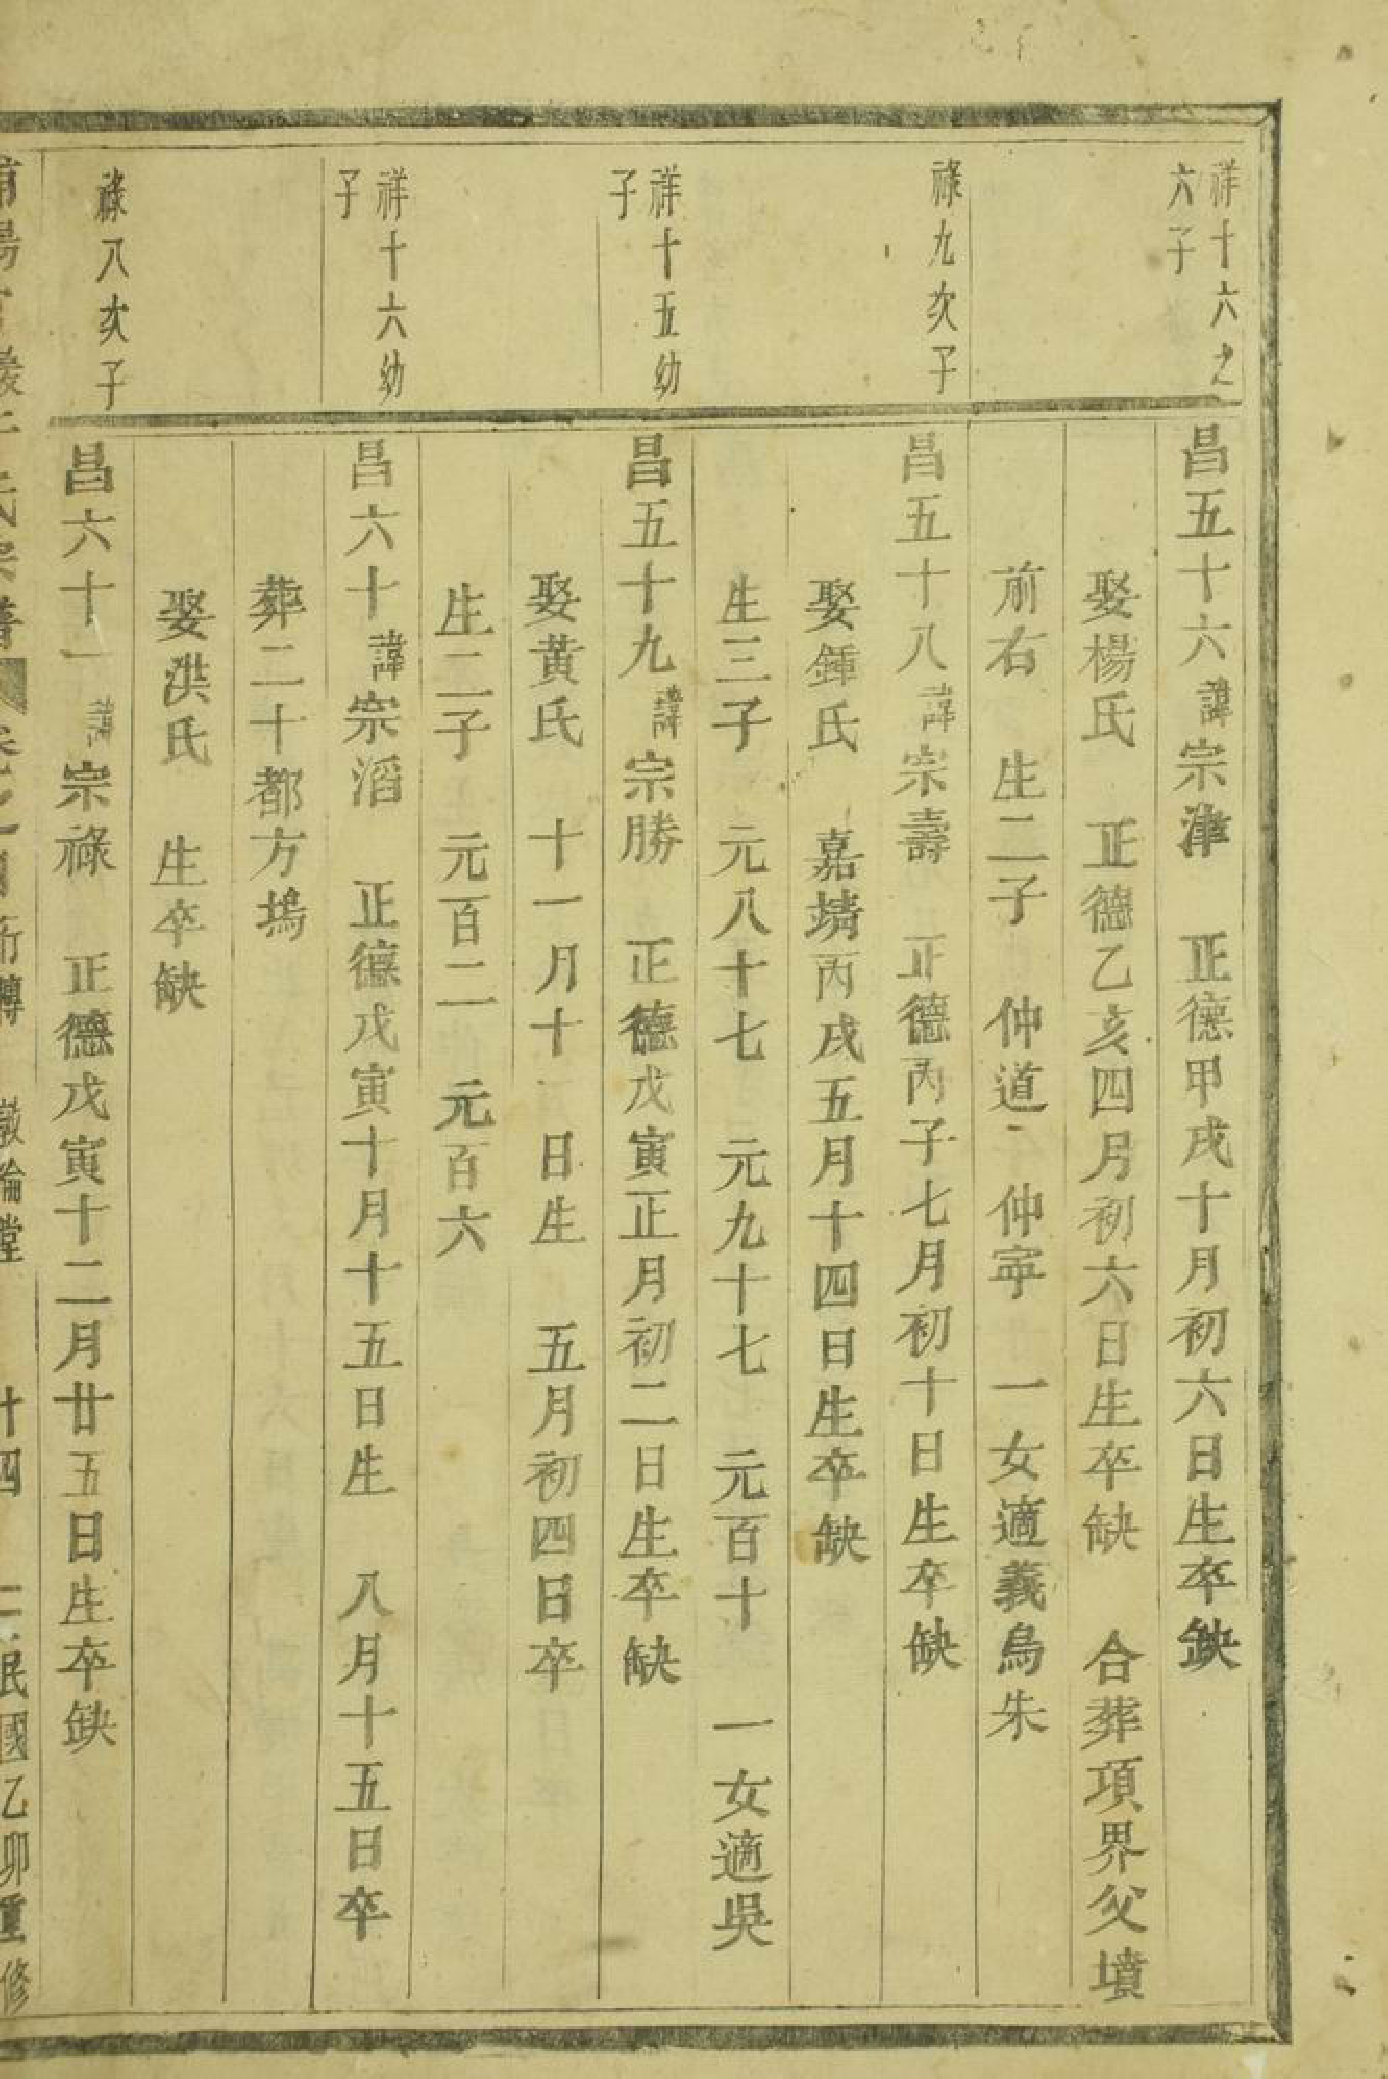 祥十六之
六子
昌五十六 諱宗津 正德甲戌十月初六日生卒缺
娶楊氏 正德乙亥四月初六日生卒缺 合葬項界父墳
前右 生二子 仲道 仲寧 一女適義烏朱
祿九次子
昌五十八 諱宗壽 正德丙子七月初十日生卒缺
娶鍾氏 嘉靖丙戌五月十四日生卒缺
生三子 元八十七 元九十七 元百十 一女適吳
祥十五幼
子
昌五十九 諱宗勝 正德戊寅正月初二日生卒缺
娶黃氏 十一月十 日生 五月初四日卒
生二子 元百二 元百六
祥十六幼
子
昌六十 諱宗滔 正德戊寅十月十五日生 八月十五日卒
葬二十都方塢
娶洪氏 生卒缺
祿八次子
昌六十一 諱宗祿 正德戊寅十二月廿五日生卒缺
氏宗譜 行傳 敦倫堂 廿四 民國乙卯重修